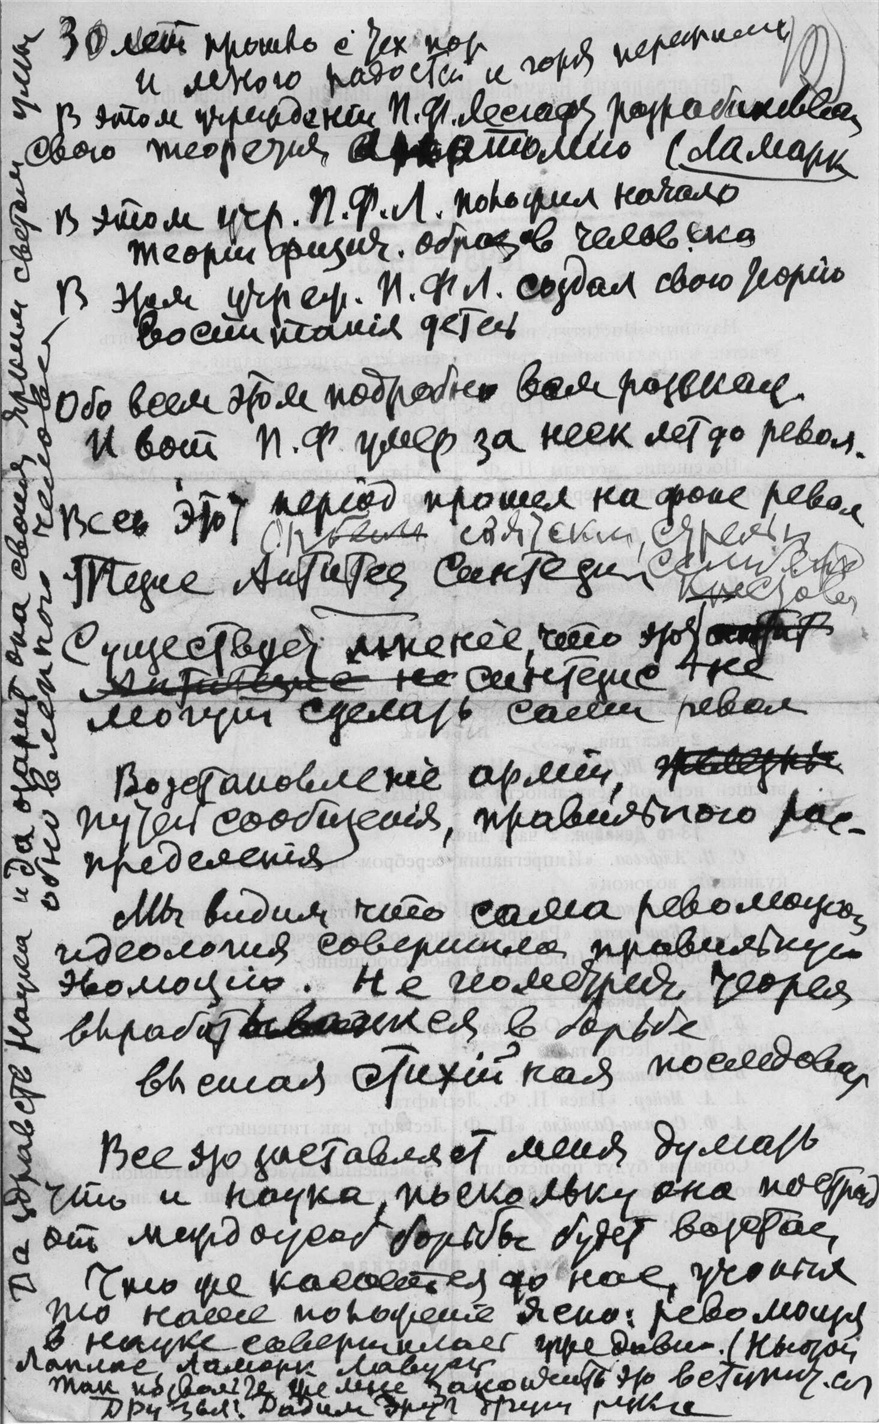 30 лет прошло с тех пор
и много радости и горя пережили
В этом учреждении П.Ф. Лесгафт разрабатывал
свою теоречия анатомию (Ламарк
В этом учр. П.Ф.Л. положил начало
теории физич. образов человека
В этом учреж. П.Ф.Л. создал свою теорию
воспитания детей
Обо всем этом подробно вам расскаж.
И вот П.Ф умер за неск лет до револ.
Весь этот період прошел на фоне револ
Тезис Антитез Синтезис
Существует мненіе, что этот
Антитезис не синтезис не
могут сделать сами револ
Возстановленіе арміи, железн
путей сообщения, правильного рас-
пределенія
Мы видим что сама революцион
идеология совершила правильную
эволюцію. Не геометрич. теория
выработ в борьбе
высшая последоват
Все это заставляет меня думать
что и наука, поскольку она пострад
от междоусоб борьбы будет возстан
Что же касается до нас, ученых
то наше положение ясно: революция
в науке совершилась (Ньютон
Лаплас Ламарк Лавуаз
Так позвольте же мне закончить это вступит. сл
Друзья! Дадим друг другу руки
Да здравств Наука и да озарит она своим ярким светом умы